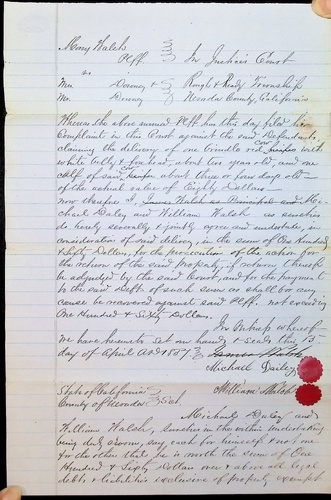 Mary Walsh
Plff. In Justices Court
vs
Mrs. Downey & Rough & Ready Township
Mr. Downey Nevada County, California
Whereas the above named Plff. has this day filed
Complaint in this Court against the said Defendants,
claiming the delivery of one brindle red Cow with
white belly & forehead about ten years old, and one
calf of said about three or four days old
of the actual value of Eighty Dollars
now therefore I, James Walsh as Principal and Mi-
chael Daley and William Walsh as sureties
do hereby severally & jointly agree and undertake, in
consideration of said delivery, in the sum of One Hundred
& Sixty Dollars, for the prosecution of the action for
the return of the said property, if return thereof
be adjudged by the said Court, and for the payment
to the said Deft. of such sum as shall for any
cause be recovered against said Plff. not exceeding
One Hundred & Sixty Dollars.
In Witness whereof
we have hereunto set our hands & seals this 15
day of April A.D. 1887
James Walsh
Michael Dailey
William Walsh
State of California
County of Nevada
Michael Daley and
William Walsh, sureties in the within undertaking
being duly sworn, say, each for himself & not one
for the other that he is worth the sum of One
Hundred & Sixty Dollars over & above all legal
debts & liabilities exclusive of property exempt